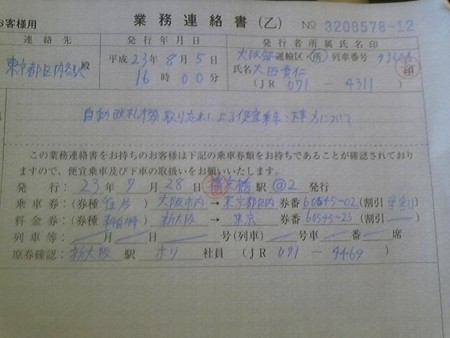 お客様用 業務連絡書(乙) № 3208578-12
連絡先 発行年月日 発行者所属氏名印
東京都区内各駅 殿
平成23年8月5日
16時00分
大阪 運輸区 (所) 列車番号
氏名 大田貴仁
(JR 071 - 4311)
自動改札機取り
この業務連絡書をお持ちのお客様は下記の乗車券類をお持ちであることが確認されており
ますので、便宜乗車及び下車の取扱いをお願いいたします。
発行:23年7月28日 駅@2発行
乗車券:(券種 大阪市内→東京都区内 券番60545-02(割引
料金券:(券種 新大阪→東京 券番60545-23(割引
列車等: 月 日 号(列車) 号車 番 席
原券確認:新大阪 駅 ホリ 社員 (JR 071 - 4469)